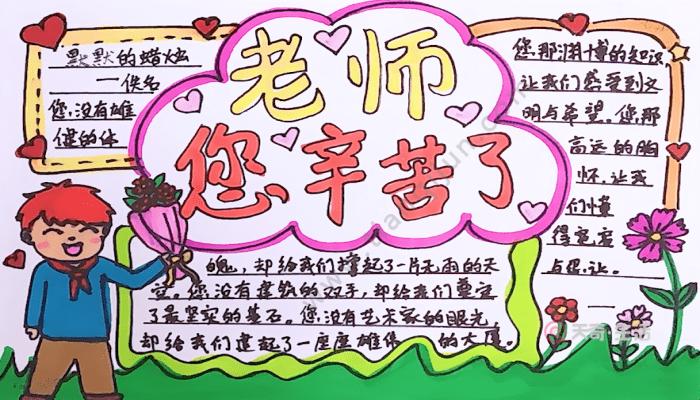 老师
您辛苦了
默默的蜡烛
—佚名
您,没有雄
健的体
魄,却给我们撑起了一片无雨的天
空。您没有建筑的双手,却给我们奠定
了最坚实的基石。您没有艺术家的眼光
却给我们建起了一座座雄伟 的大厦。
您那渊博的知识
让我们感受到文
明与希望。您那
高远的胸
怀,让我
们懂
得宽容
与忍让。
天奇生活